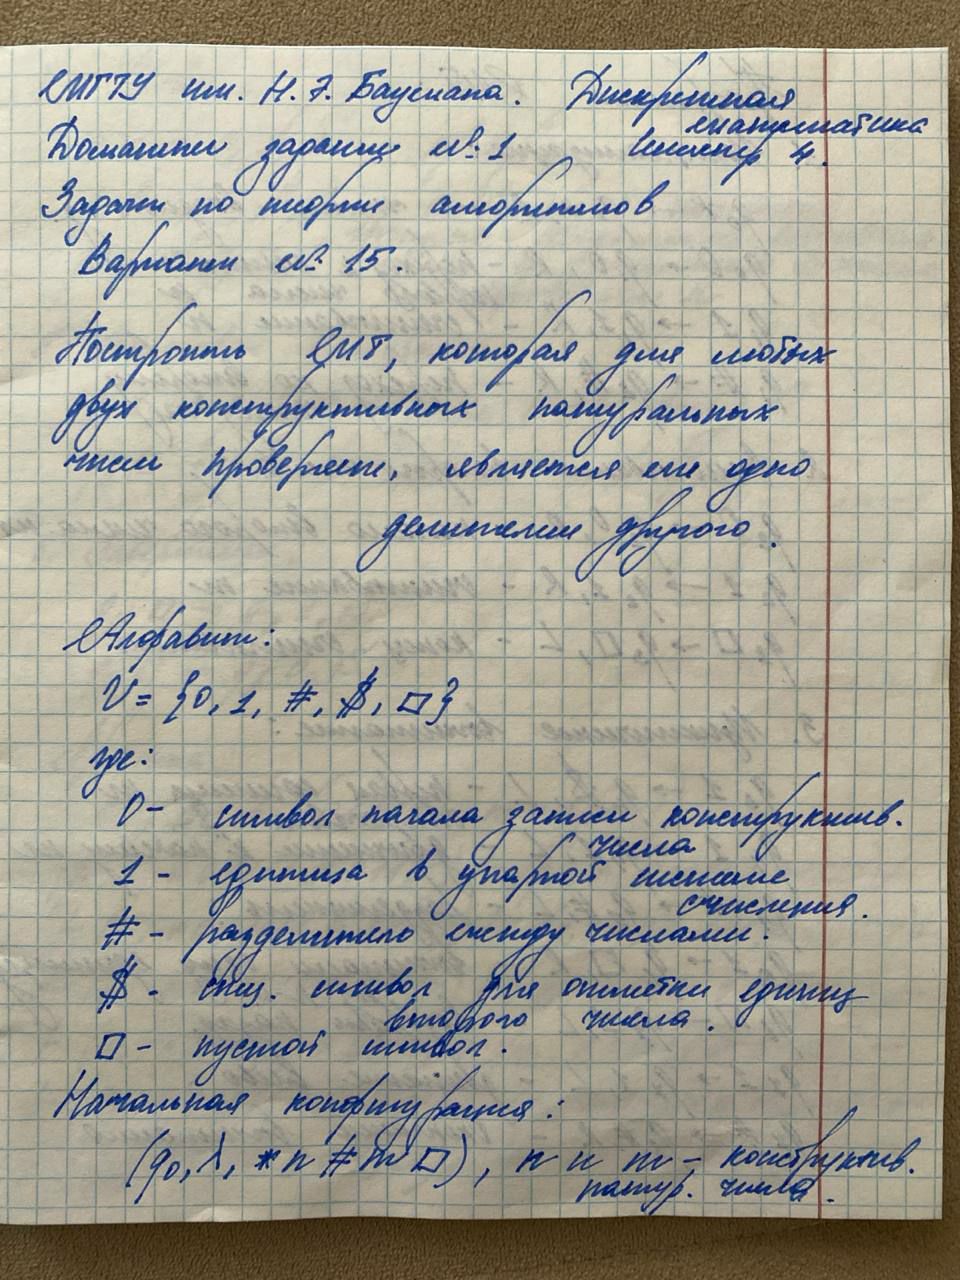 МГТУ им. Н.Э. Баумана. Дискретная математика
Домашнее задание №1 семестр 4.
Задачи по теории алгоритмов
Вариант №15.
Построить МТ, которая для любых
двух конструктивных натуральных
чисел проверяет, является ли одно
делителем другого.
Алфавит:
V = {0, 1, #, $, □}
где:
0 - символ начала записи конструктив. числа
1 - единица в унарной системе счисления.
# - разделитель между числами.
$ - спец. символ для отметки единиц второго числа.
□ - пустой символ.
Начальная конфигурация:
(q₀, λ, *n # m □), n и m - конструктив. натур. числа.